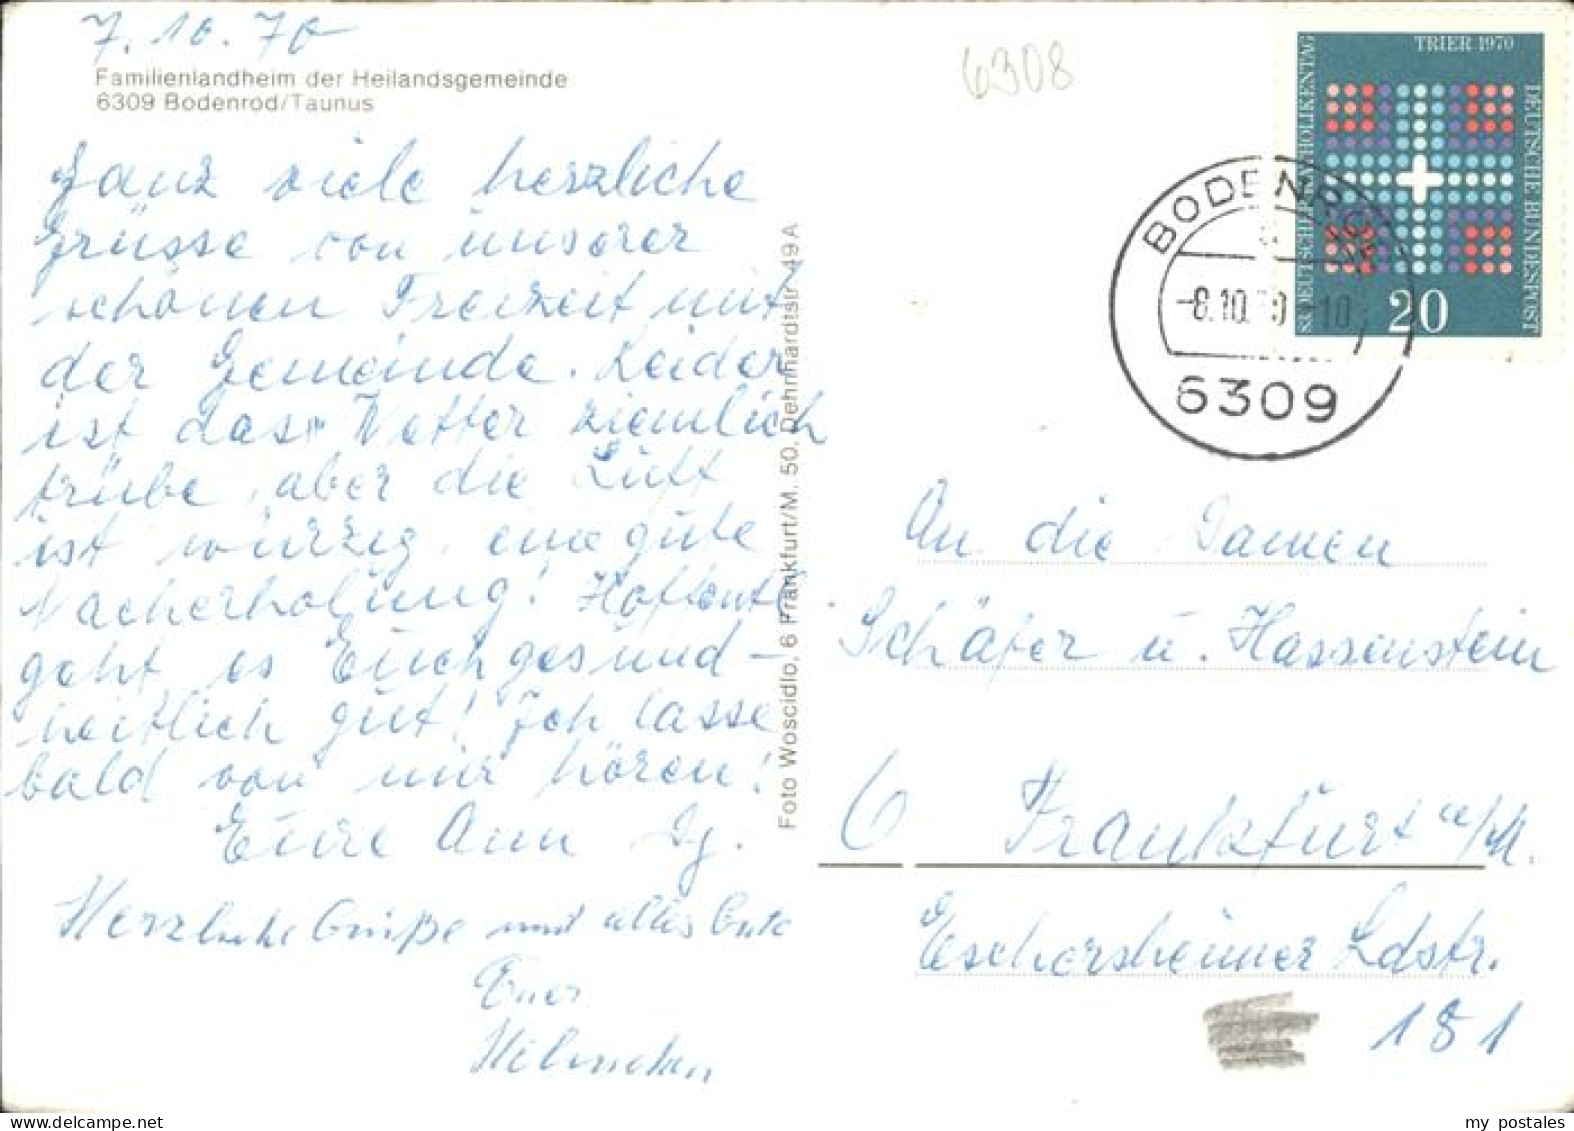 7.10.70
Familienlandheim der Heilandsgemeinde
6309 Bodenrod/Taunus
Ganz viele herzliche
Grüsse von unserer
schönen Freizeit mit
der Gemeinde. Leider
ist das Wetter ziemlich
trübe, aber die Luft
ist würzig, eine gute
Nacherholung! Hoffentl.
geht es Euch gesund-
heitlich gut! Ich lasse
bald von mir hören!
Eure Ann
Herzliche Grüße und alles Gute
Euer
Foto Woscidlo, 6 Frankfurt/M. 50, Dehnhardtstr. 49 A
6308
TRIER 1970
83. DEUTSCHER KATHOLIKENTAG
DEUTSCHE BUNDESPOST
20
BODENROD
-8.10.70-10
6309
An die Damen
Schäfer u. Hassenstein
6 Frankfurt a/M.
Eschersheimer Ldstr.
181